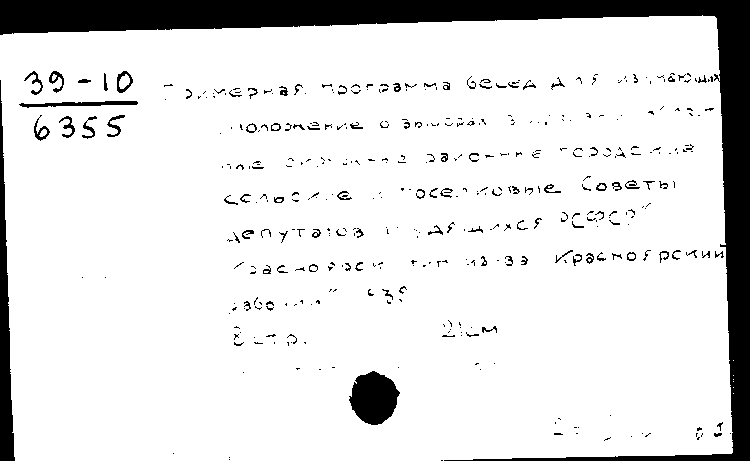 39-10
6355
Примерная программа бесед для изучающих
"Положение о выборах в краевые
окружные районные городские
сельские и поселковые Советы
депутатов трудящихся РСФСР"
Красноярск тип из-ва Красноярский
рабочий" 39
8 стр. 21см